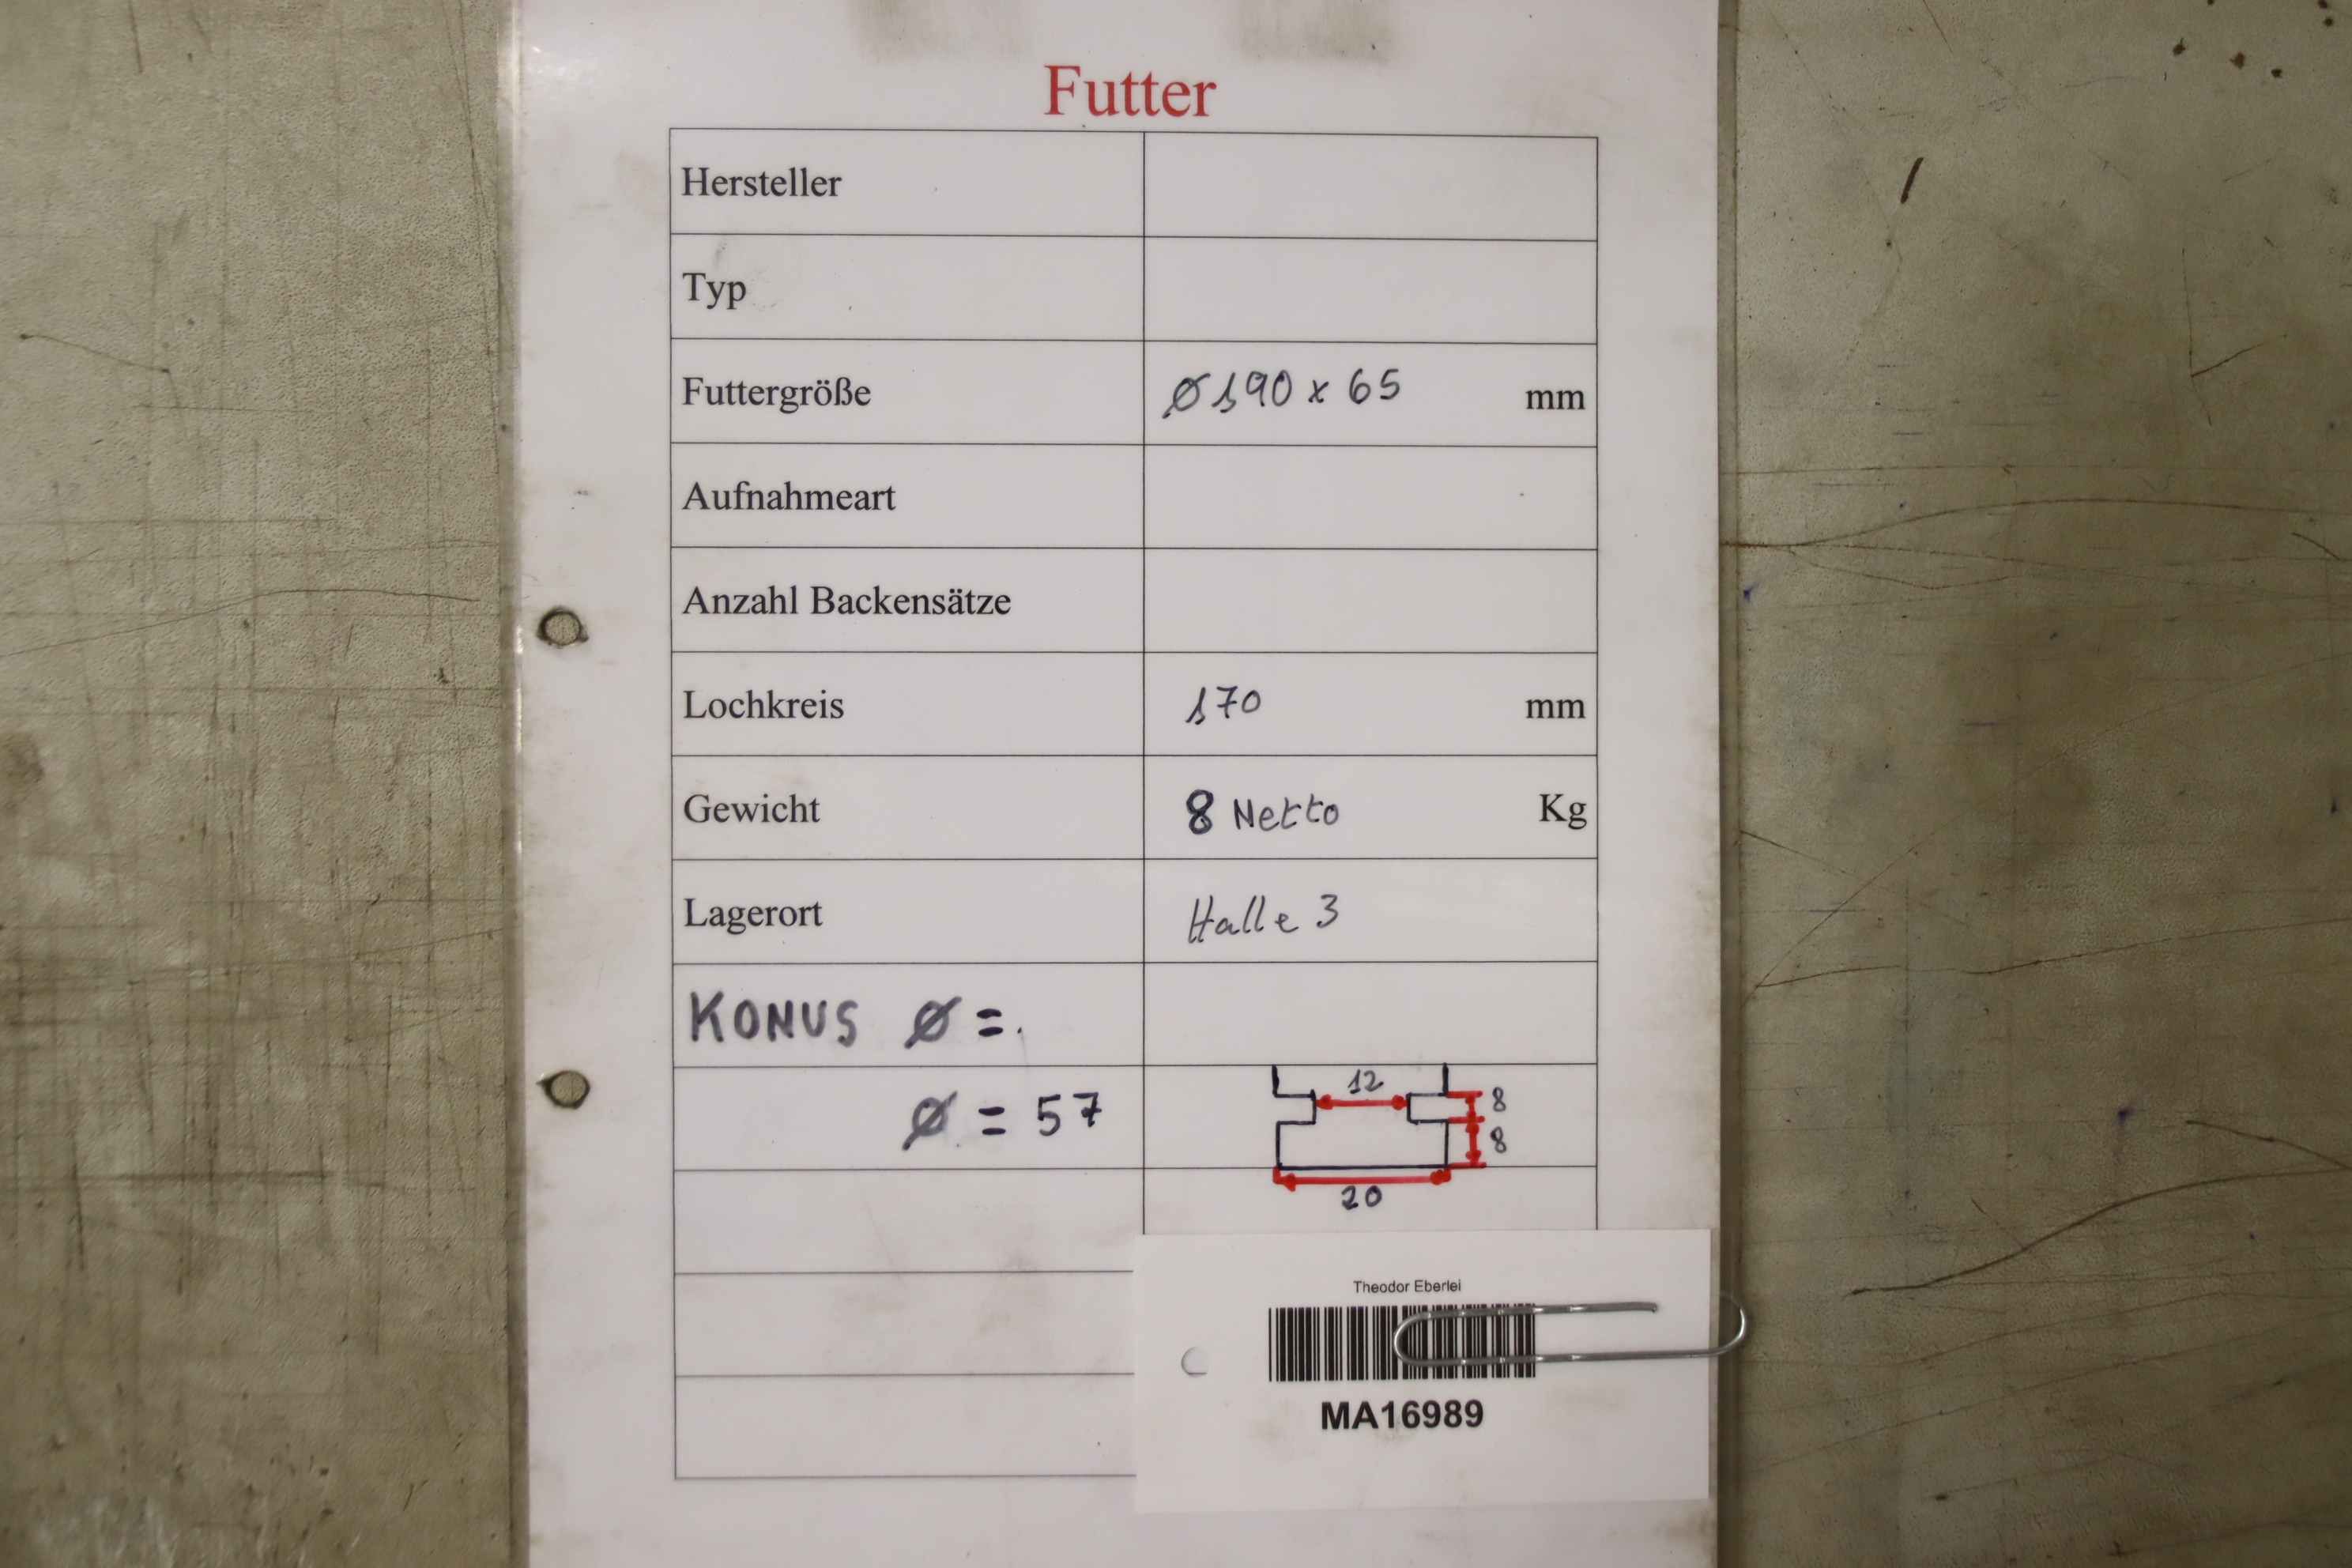 Futter
Hersteller
Typ
Futtergröße ø190 x 65 mm
Aufnahmeart
Anzahl Backensätze
Lochkreis 170 mm
Gewicht 8 Netto Kg
Lagerort Halle 3
KONUS ø =
ø = 57
12
8
8
20
Theodor Eberlei
MA16989